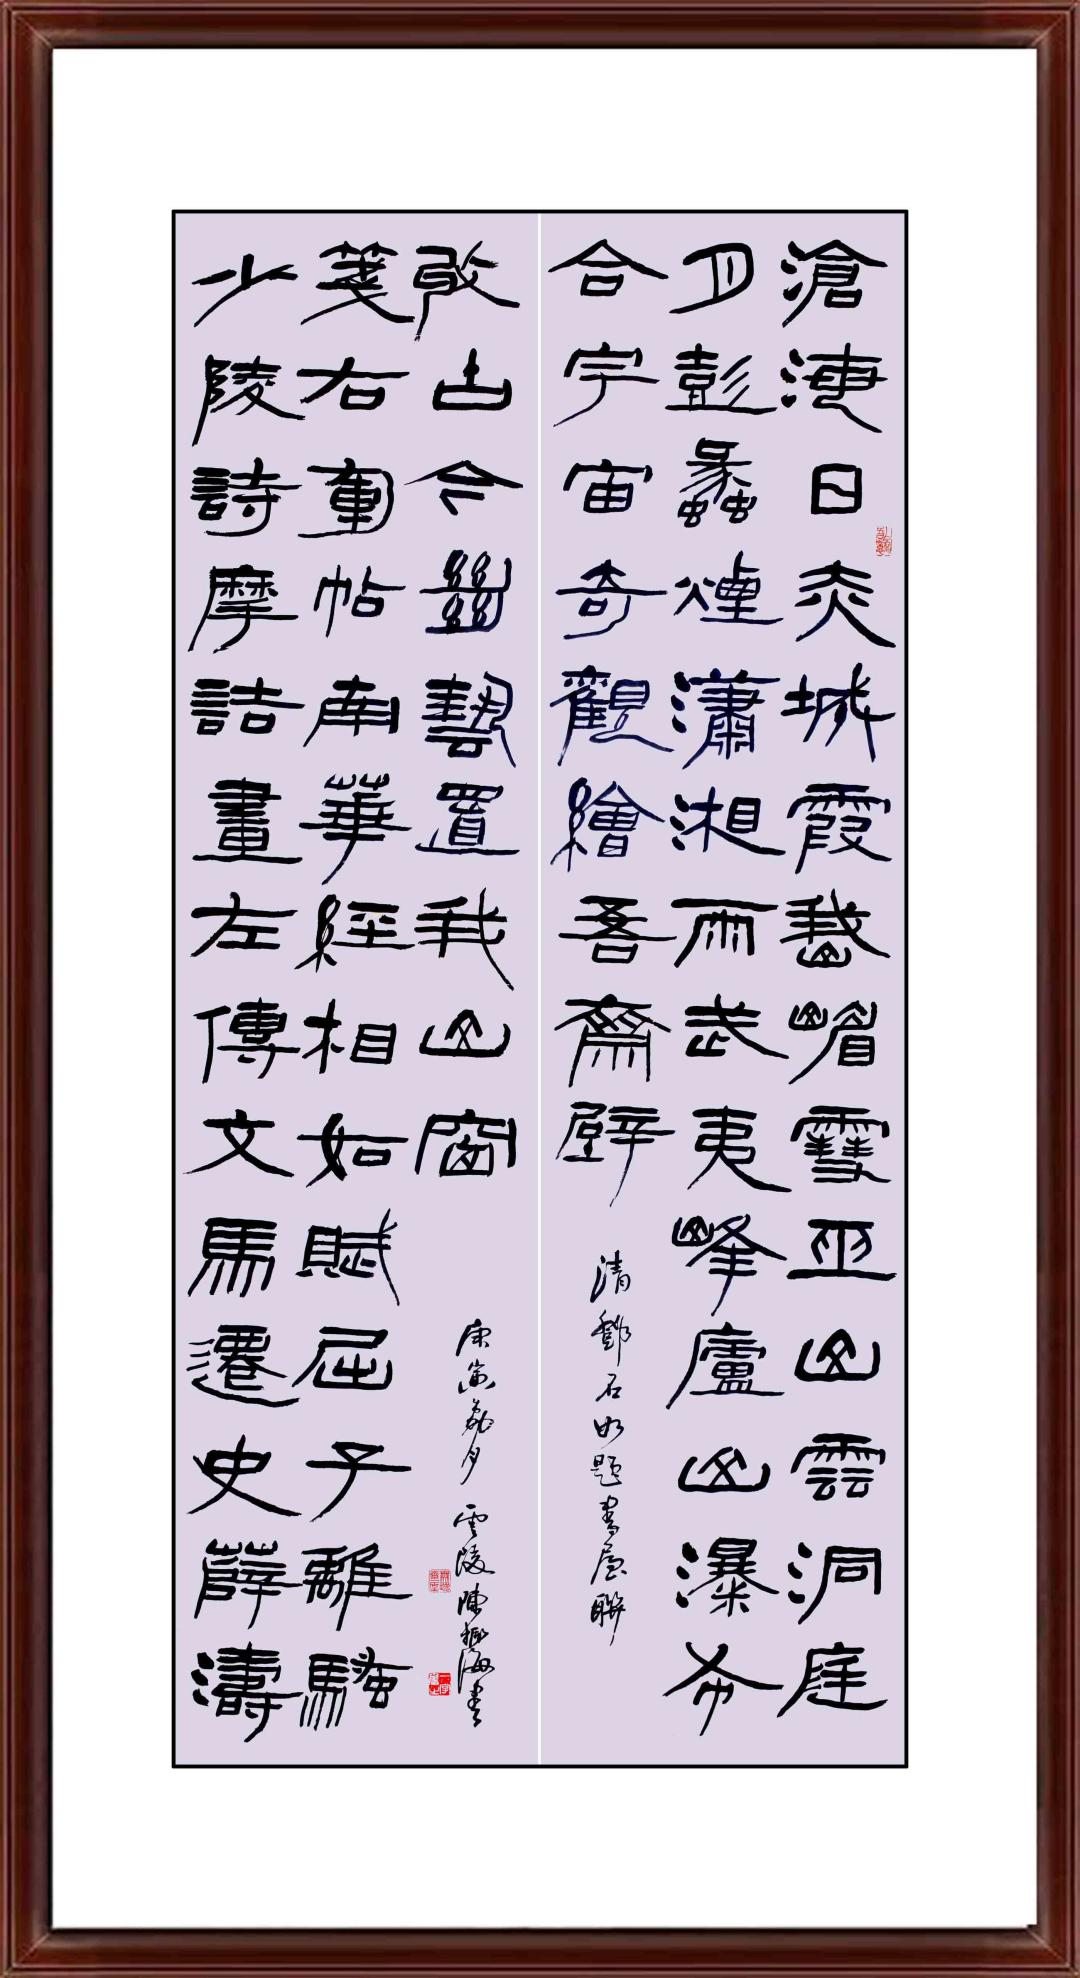 滄海日赤城霞峩嵋雪巫山雲洞庭
月彭蠡煙瀟湘雨武夷峰廬山瀑布
合宇宙奇觀繪吾齋壁
清鄧石如題書屋聯
少陵詩摩詰畫左傳文馬遷史薛濤
箋右軍帖南華經相如賦屈子離騷
收古今絕藝置我山窗
庚寅荔月雲陵陳振海書